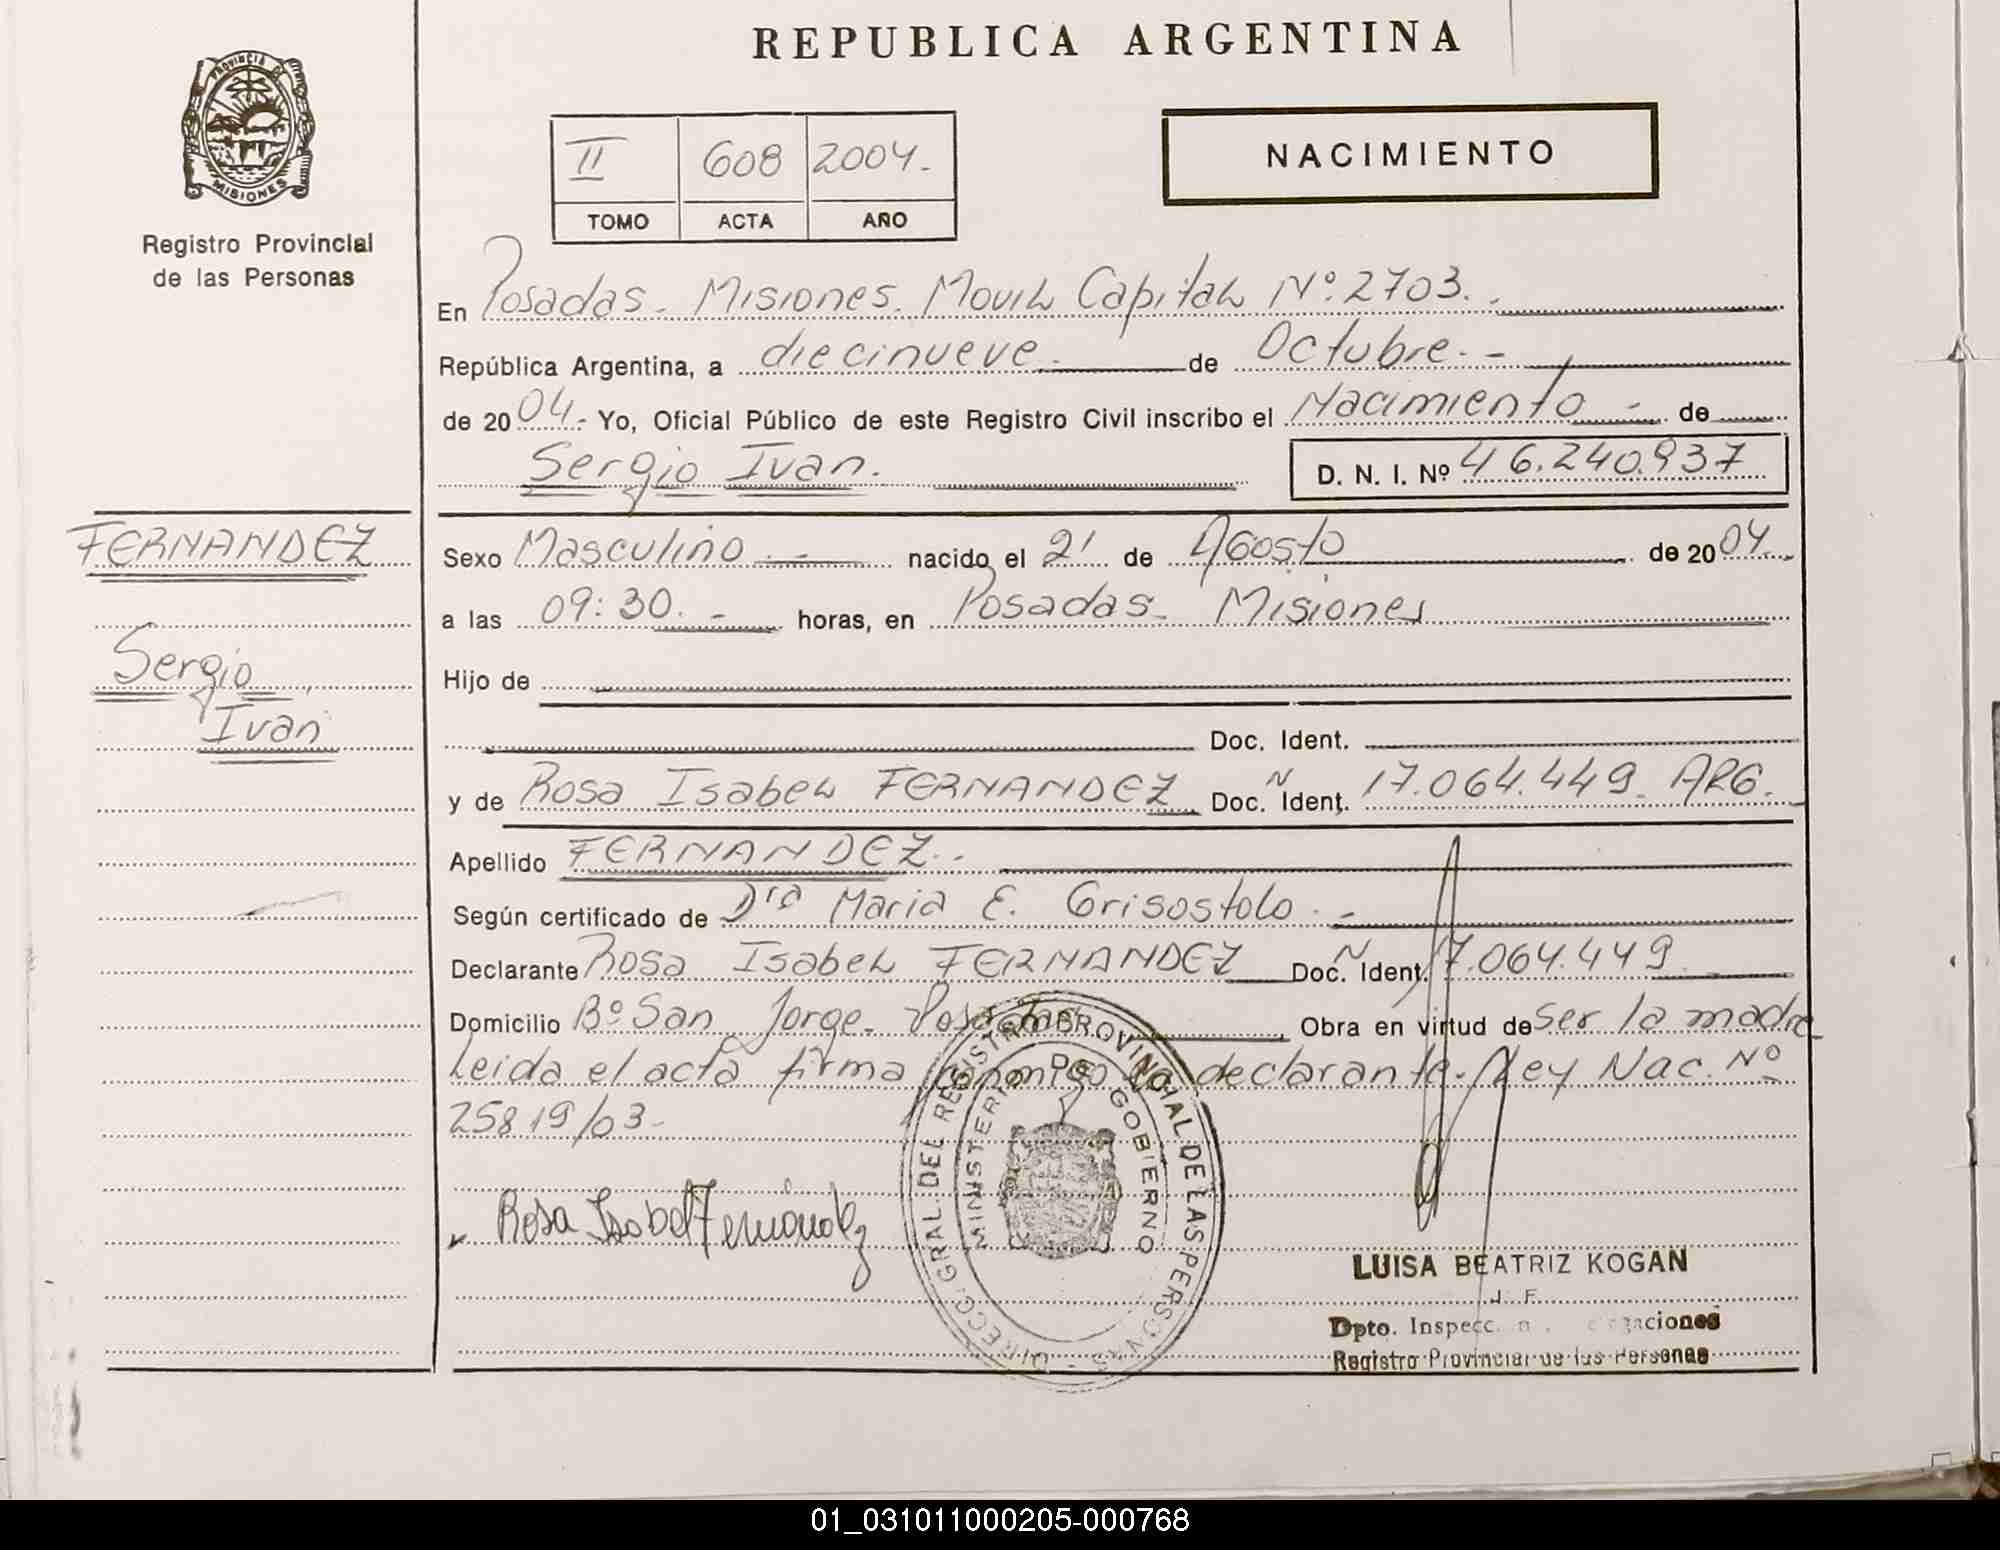 REPUBLICA ARGENTINA
PROVINCIA DE
MISIONES
Registro Provincial
de las Personas
II 608 2004.-
TOMO ACTA AÑO
NACIMIENTO
En Posadas - Misiones. Movil Capital Nº 2703.-
República Argentina, a diecinueve.- de Octubre.-
de 2004.- Yo, Oficial Público de este Registro Civil inscribo el Nacimiento - de
Sergio Ivan. D. N. I. Nº 46.240.937
FERNANDEZ
Sergio
Ivan
Sexo Masculino.- nacido el 21 de Agosto de 2004.-
a las 09:30.- horas, en Posadas - Misiones
Hijo de
Doc. Ident.
y de Rosa Isabel FERNANDEZ Doc. N Ident. 17.064.449 - ARG.
Apellido FERNANDEZ.-
Según certificado de Dra Maria E. Grisostolo.-
Declarante Rosa Isabel FERNANDEZ Doc. N Ident. 17.064.449
Domicilio Bº San Jorge - Posadas Obra en virtud de ser la madre
Leida el acta firma conmigo la declarante. Ley Nac. Nº
25819/03.-
Rosa Isabel Fernández
DIRECC. GRAL. DEL REGISTRO PROVINCIAL DE LAS PERSONAS -
MINISTERIO DE GOBIERNO
LUISA BEATRIZ KOGAN
J. F.
Dpto.
Registro Provincial de las Personas
01_031011000205-000768